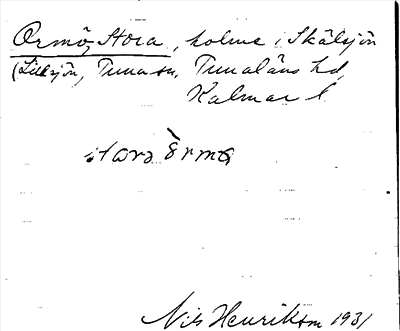 Ormö, Stora, holme i Skälsjön
(Lillsjön, Tuna sn, Tunaläns hd,
Kalmar l.
stora òrmö
Nils Henrikson 1931